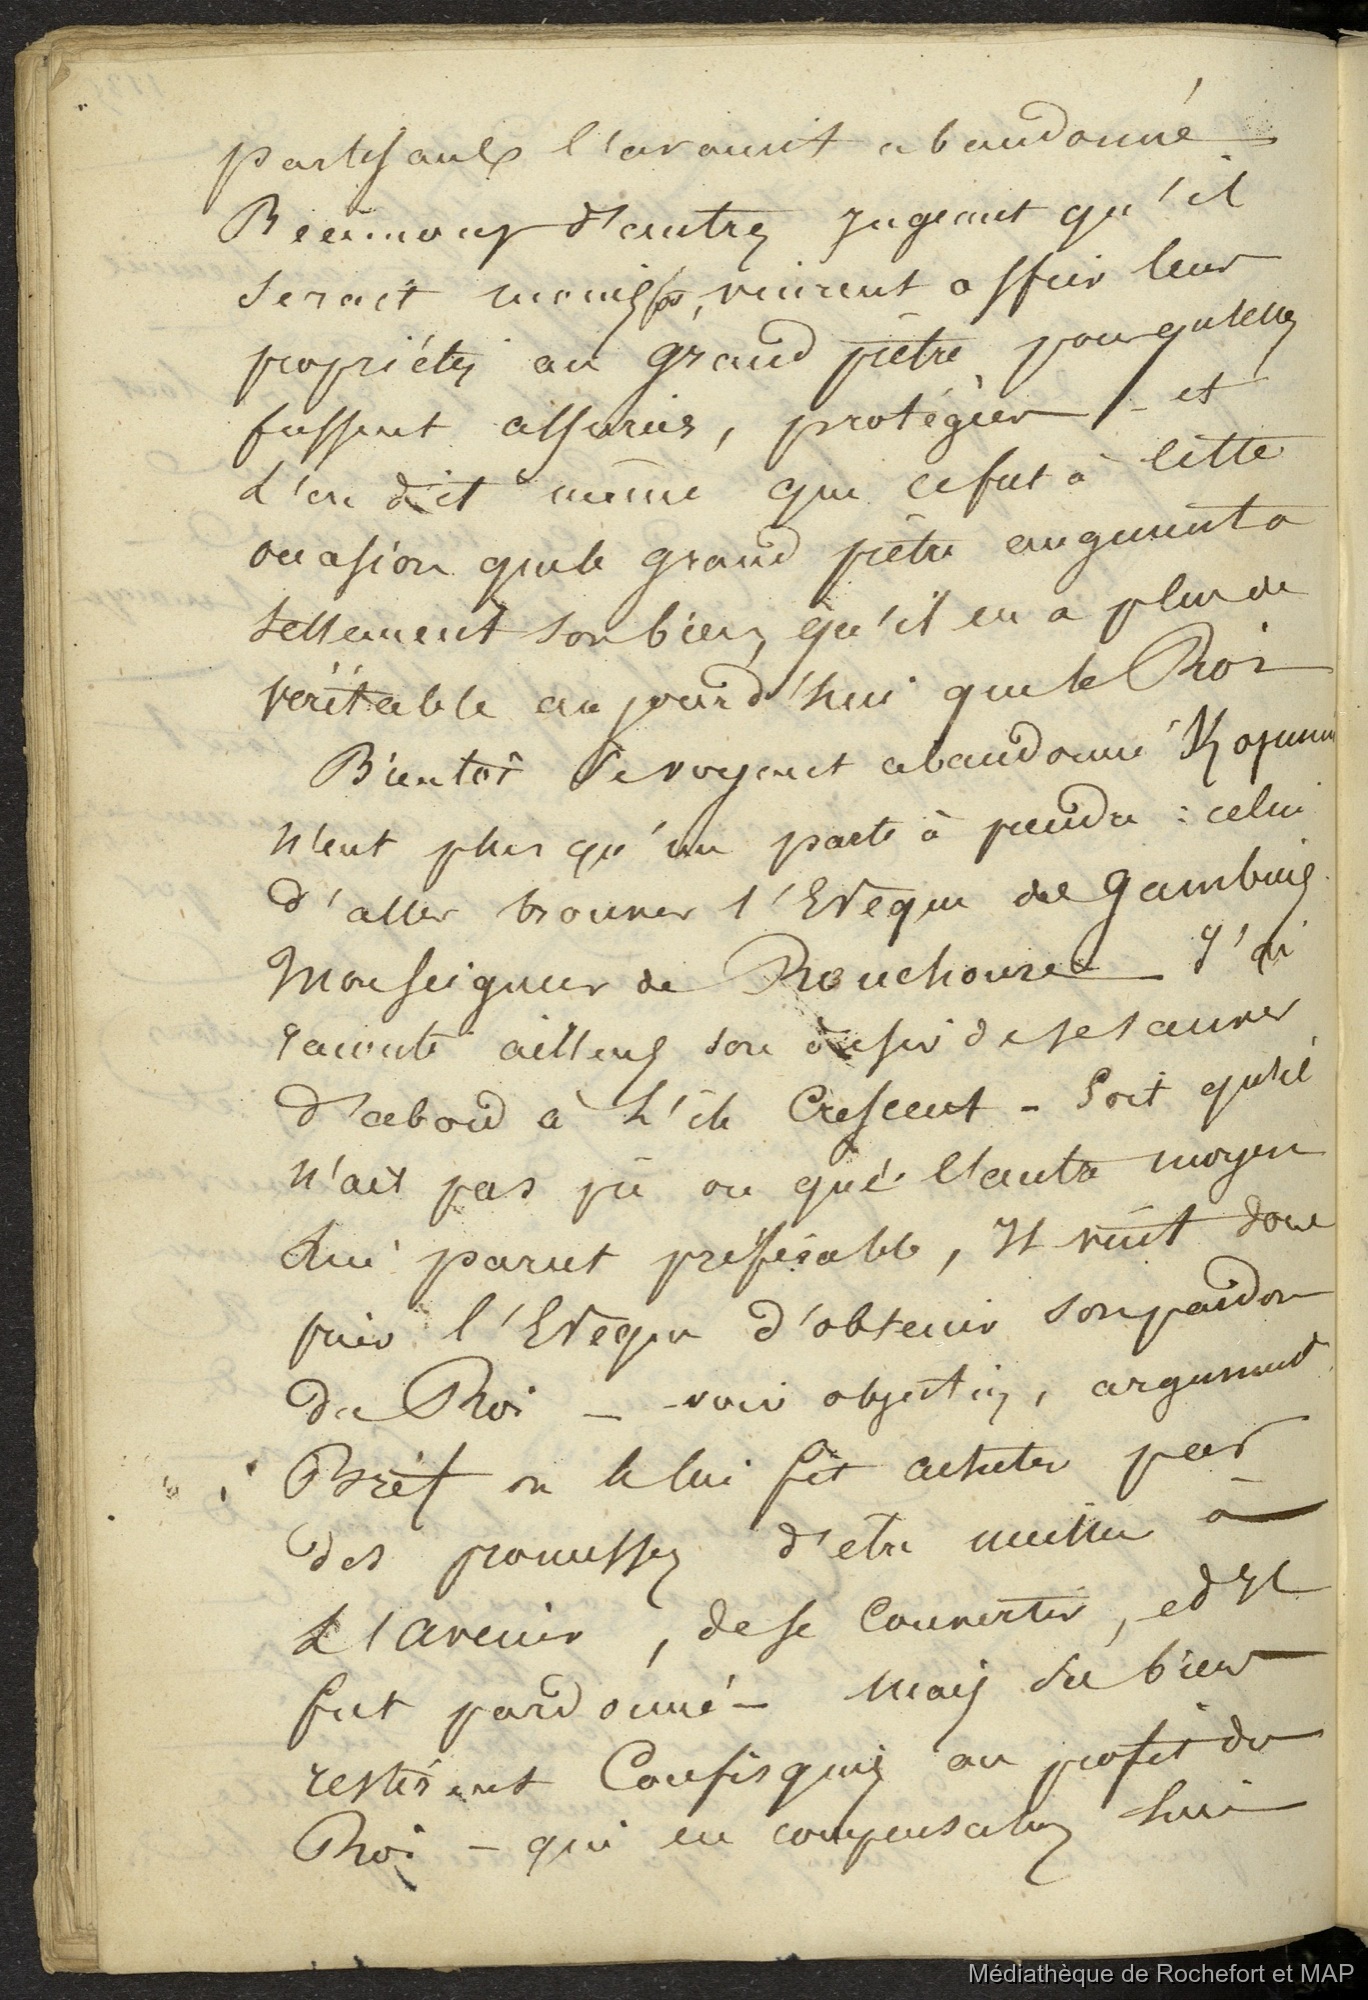 partisans l'avaient abandonné
Beaucoup d'autres jugeant qu'il
serait vinrent offrir leur
propriétés au grand prêtre pour qu'elles
fussent assurées, protégées - et
l'on dit même que ce fut à cette
occasion que le grand prêtre augmenta
tellement son bien, qu'il en a plus de
véritable aujourd'hui que le Roi
Bientôt se voyant abandonné
n'eut plus qu'un parti à prendre : celui
d'aller trouver l'Evêque de Gambier
Monseigneur de Rouchouze J'ai
raconté ailleurs son désir de se sauver
d'abord à l'île Crescent - Soit qu'il
n'ait pas pû ou que l'autre moyen
lui parut préférable, Il vint donc
prier l'Evêque d'obtenir son pardon
du Roi - - voir objection, argument
Bréf on le lui fit acheter par
des promesses d'etre meilleur à
l'avenir, de se convertir, et Il
fut pardonné - Mais ses biens
restèrent Confisqués au profit du
Roi - qui en compensation lui
Médiathèque de Rochefort et MAP